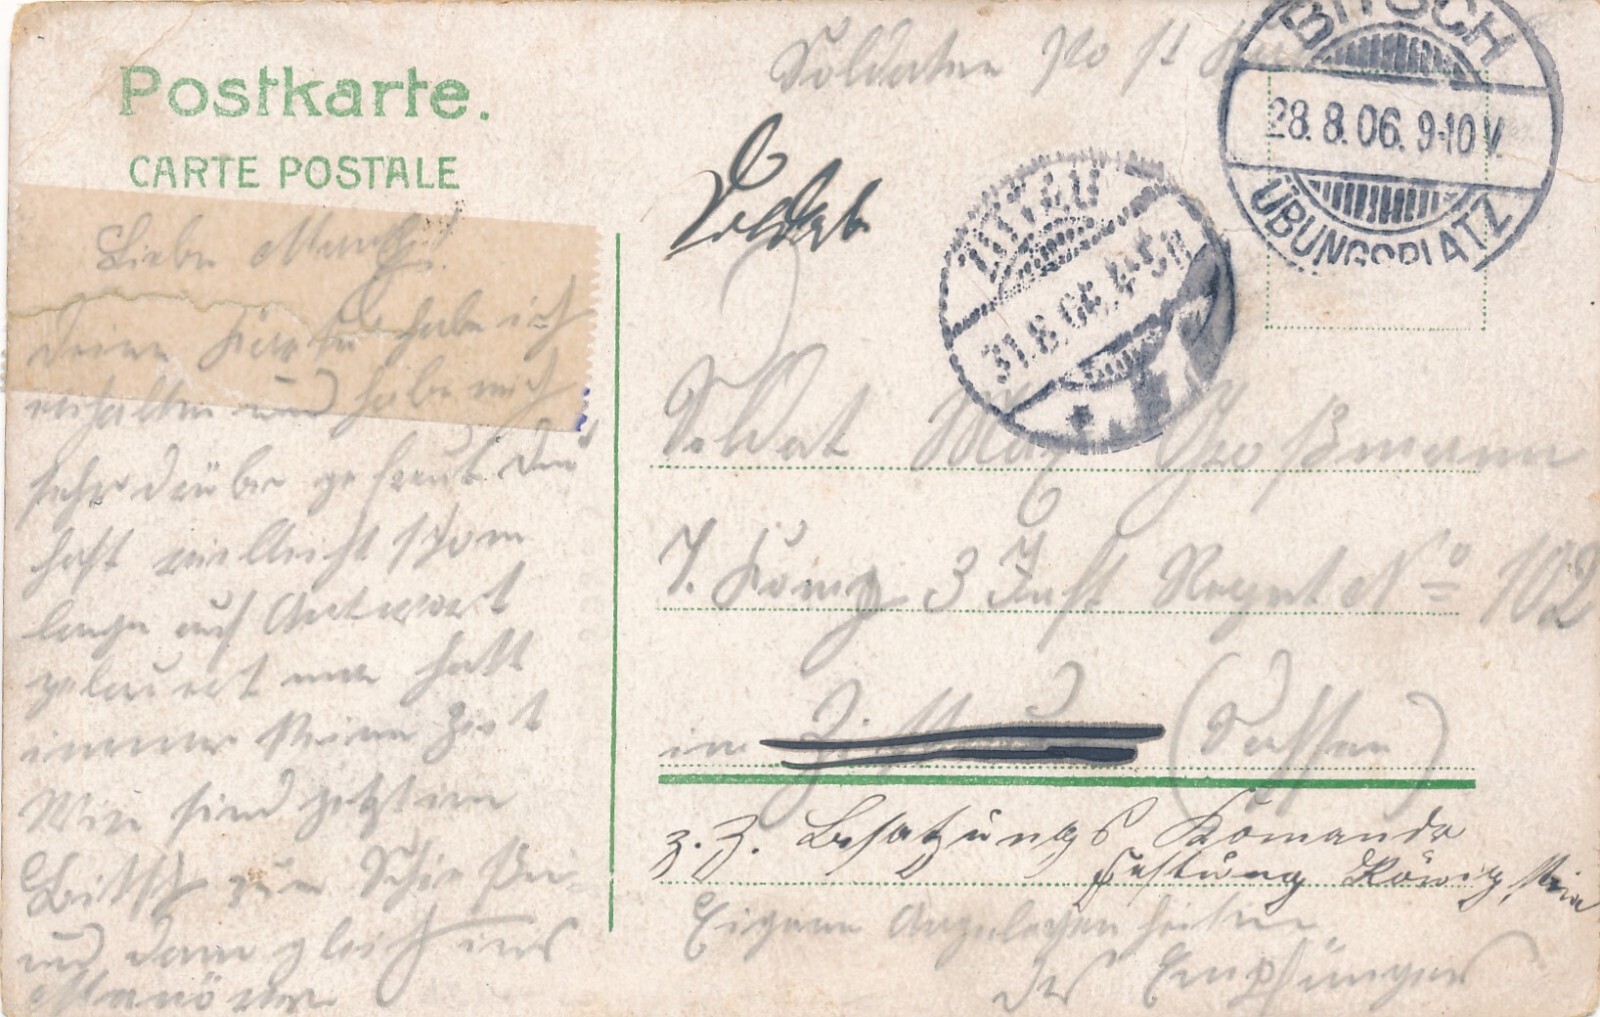 Postkarte.
CARTE POSTALE
Soldaten
BITSCH
28. 8. 06. 9-10 V.
ÜBUNGSPLATZ
ZITTAU
31.8.06. 4-5 N
Liebe
Deine Karte habe ich
erhalten und habe mich
sehr darüber gefreut Du
hast vielleicht schon
lange auf Antwort
gelauert man hatt
immer keine Zeit
Wir sind jetzt in
Bitsch zum Schießen
und dann gleich ins
Manöver
Soldat Max Großmann
7. Komp 3 Inft Regmt No 102
in Zittau (Sachsen)
z. Z. Besatzungs Komando
Festung Königstein
Eigene Angelegenheiten
des Empfängers